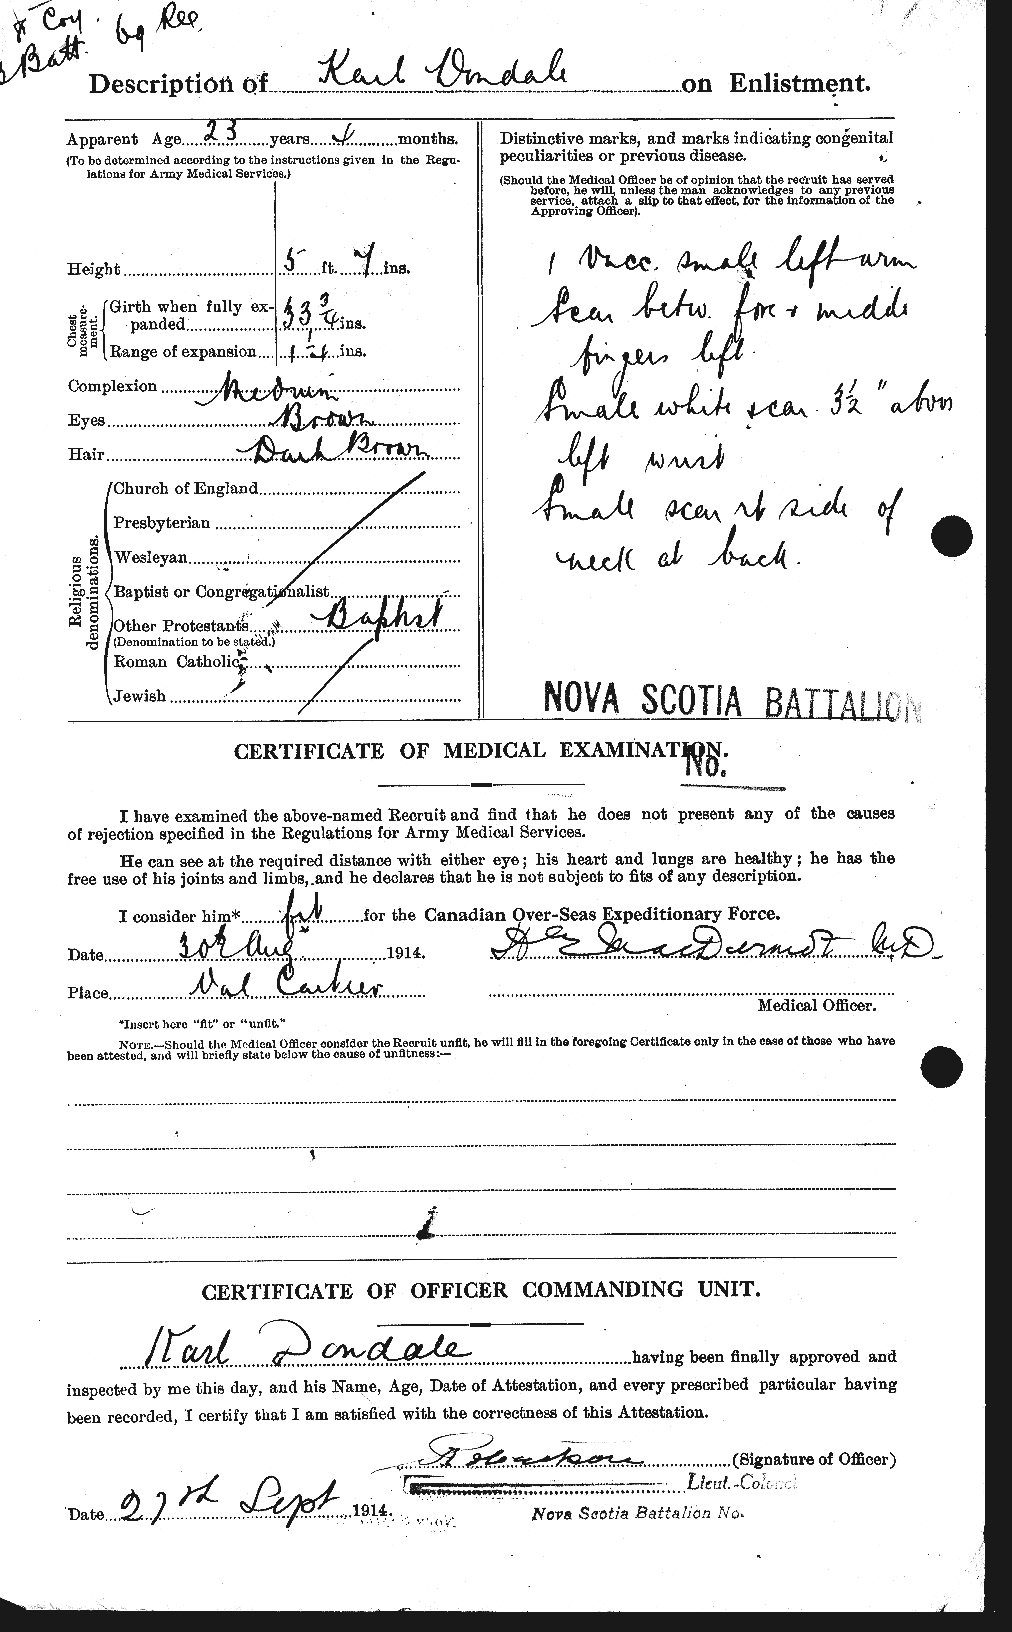 Coy. 69 Reg.
Batt.
Description of Karl Dondale on Enlistment.
Apparent Age 23 years 4 months.
(To be determined according to the instructions given in the Regu-
lations for Army Medical Services.)
Height 5 ft. 7 ins.
Chest measure-
ment.
Girth when fully ex-
panded 33 3/4 ins.
Range of expansion ins.
Complexion Medium
Eyes Brown
Hair Dark Brown
Religious
denominations.
Church of England
Presbyterian
Wesleyan
Baptist or Congregationalist
Other Protestants Baptist
(Denomination to be stated.)
Roman Catholic
Jewish
Distinctive marks, and marks indicating congenital
peculiarities or previous disease.
(Should the Medical Officer be of opinion that the recruit has served
before, he will, unless the man acknowledges to any previous
service, attach a slip to that effect, for the information of the
Approving Officer).
1 Vacc. small left arm
Scar betw. fore + middle
fingers left.
Small white scar 3½" above
left wrist
Small scar rt side of
neck at back.
NOVA SCOTIA BATTALION
No.
CERTIFICATE OF MEDICAL EXAMINATION.
I have examined the above-named Recruit and find that he does not present any of the causes
of rejection specified in the Regulations for Army Medical Services.
He can see at the required distance with either eye; his heart and lungs are healthy; he has the
free use of his joints and limbs, and he declares that he is not subject to fits of any description.
I consider him* fit for the Canadian Over-Seas Expeditionary Force.
Date 30th Aug 1914. MacDermot M.D.
Place Val Cartier
Medical Officer.
*Insert here "fit" or "unfit."
NOTE.—Should the Medical Officer consider the Recruit unfit, he will fill in the foregoing Certificate only in the case of those who have
been attested, and will briefly state below the cause of unfitness:—
CERTIFICATE OF OFFICER COMMANDING UNIT.
Karl Dondale having been finally approved and
inspected by me this day, and his Name, Age, Date of Attestation, and every prescribed particular having
been recorded, I certify that I am satisfied with the correctness of this Attestation.
(Signature of Officer)
Lieut.-Colonel
Date 27th Sept 1914. Nova Scotia Battalion No.